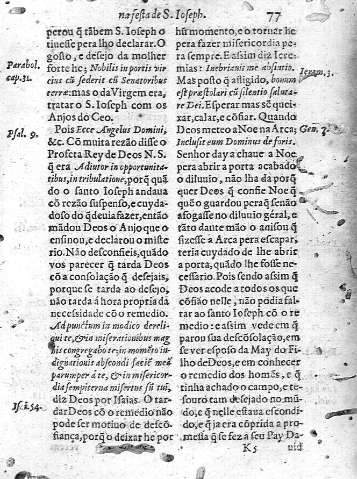 na festa de S. Ioseph.
77
perou q̃ tãbem S. Ioseph o
tiuesse pera lho declarar. O
gosto, e desejo da molher
forte he; Nobilis in portis vir
eius cũ sederit cũ Senatoribus
terræ: mas o da Virgem era,
tratar o S. Ioseph com os
Anjos do Ceo.
Pois Ecce Angelus Domini,
&c. Cõ muita rezão disse o
Profeta Rey de Deos N. S.
q̃ era Adiutor in opportunita-
tibus, in tribulatione, porq̃ quã
do o santo Ioseph andaua
cõ rezão suspenso, e cuyda-
doso do q̃ deuia fazer, entaõ
mãdou Deos o Anjo que o
ensinou, e declarou o miste-
rio. Não desconfieis, quãdo
vos parecer q̃ tarda Deos
cõ a consolação q̃ desejais,
porque se tarda ao desejo,
não tarda á hora propria da
necessidade cõ o remedio.
Ad punctum in modico dereli-
qui te, & in miserationibus mag
nis congregabo te; in momẽto in-
dignationis abscondi faciẽ meã
parumper á te, & in misericor-
dia sempiterna misertus sũ tui,
diz Deos por Isaias. O tar-
dar Deos cõ o remedio não
póde ser motiuo de descõ-
fiança, porq̃ o deixar he por
Parabol.
cap. 31.
Psal. 9.
Is. c. 54.
hũ momento, e o tornar he
pera fazer misericordia pe-
ra sempre. E assim diz Iere-
mias: Inebriauit me absintio.
Mas posto q̃ affligido, bonum
est præstolari cũ silentio saluta-
re Dei. Esperar mas sẽ quei-
xar, calar, e cõfiar. Quando
Deos meteo a Noe na Arca;
Inclusit eum Dominus de foris.
Senhor day a chaue a Noe
pera abrir a porta acabado
o diluuio, não lha dà porq̃
quer Deos q̃ confie Noe q̃
que o guardou pera q̃ senão
afogasse no diluuio géral, e
tãto dante mão o anisou q̃
fizesse a Arca pera escapar,
teria cuydado de lhe abrir
a porta, quãdo lhe fosse ne-
cessário. Pois sendo assim q̃
Deos acode a todos os que
cõfião nelle, não podia fal-
tar ao santo Ioseph cõ o re-
medio: e assim vede em q̃
parou sua descõsolação, em
se ver esposo da May do Fi-
lho de Deos, e em conhecer
o remedio dos homẽs, e q̃
tinha achado o campo, e te-
souro tam desejado no mũ-
do, e q̃ nelle estaua escondi-
do, e q̃ ja era cõprida a pro-
messa q̃ se fez a seu Pay Da-
Ieram. 3.
Gen. 7.
K 5
uid